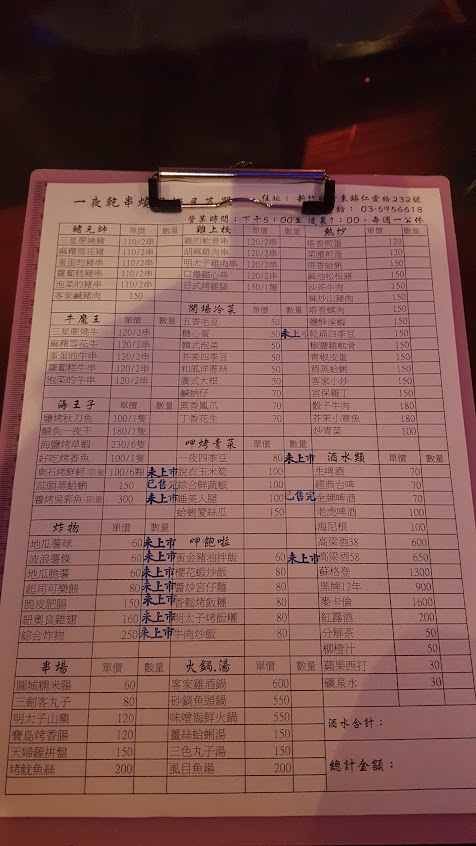 一夜乾串燒
住址： 新竹 東鎮仁愛路232號
話： 03-5956618
營業時間：下午5：00至凌晨1:00，每週一公休
豬元帥 單價 數量
三星蔥燒豬 110/2串
麻糬雪花豬 110/2串
蛋蛋的豬串 110/2串
蘿蔔糕豬串 110/2串
泡菜的豬串 110/2串
客家鹹豬肉 150
牛魔王 單價 數量
三星蔥燒牛 120/2串
麻糬雪花牛 120/2串
蛋蛋的牛串 120/2串
蘿蔔糕牛串 120/2串
泡菜的牛串 120/2串
海王子 單價 數量
鹽烤秋刀魚 100/1隻
鯖魚一夜干 180/1隻
海鹽烤草蝦 230/6隻
好吃烤香魚 100/1隻
東石烤鮮蚵 限量 100/6顆 未上市
蒜頭蒸蛤蜊 150 已售完
醬烤吳郭魚 限量 300 未上市
炸物 單價 數量
地瓜薯球 60 未上市
波浪薯條 60 未上市
地瓜脆薯 60 未上市
起司可樂餅 80 未上市
脆皮肥腸 150 未上市
紐奧良雞翅 160 未上市
綜合炸物 250 未上市
串場 單價 數量
圓城糯米腸 60
三劍客丸子 80
明太子山藥 120
寶島烤香腸 120
天婦羅拼盤 150
烤魷魚絲 200
雞上枝 單價 數量
雞的軟骨串 120/2串
胡麻雞肉串 120/2串
明太子雞肉串 120/2串
口爆雞心串 120/2串
日式烤雞腿 150/1隻
開場冷菜 單價 數量
五香毛豆 50
糖心蛋 50 未上市
韓式泡菜 50
芥茉四季豆 50
和風洋蔥絲 50
廣式大根 50
鹹蚋仔 70
蔗香鳳爪 70
丁香花生 70
呷烤青菜 單價 數量
一夜四季豆 80 未上市
脫衣玉米筍 100
綜合鮮蔬椒 100
睡美人腿 100 已售完
蛤蜊愛絲瓜 150
呷飽啦 單價 數量
黃金豬油拌飯 60 未上市
櫻花蝦炒飯 80
醬炒宮仔麵 80
香鬆烤飯糰 80
明太子烤飯糰 80
牛肉炒飯 80
火鍋.湯 單價 數量
客家雞酒鍋 600
砂鍋魚頭鍋 550
味噌海鮮火鍋 550
薑絲蛤蜊湯 150
三色丸子湯 150
虱目魚湯 200
熱炒 單價 數量
塔香煎蛋 120
菜脯煎蛋 120
塔香蛤蜊 150
麻油松板豬 150
沙茶牛肉 150
辣炒山豬肉 150
塔香螺肉 150
鹽酥溪蝦 150
乾扁四季豆 150
椒鹽雞軟骨 150
青椒皮蛋 150
清蒸蛤蜊 150
客家小炒 150
宮保雞丁 150
骰子牛肉 180
芥茉小章魚 180
炒青菜 100
酒水類 單價 數量
生啤酒 70
經典台啤 70
金牌啤酒 70
老虎啤酒 100
海尼根 100
高梁酒38 600
高梁酒58 650
蘇格登 1300
黑牌12年 900
麥卡倫 1600
紅露酒 200
分解茶 50
柳橙汁 50
蘋果西打 30
礦泉水 30
酒水合計：
總計金額：